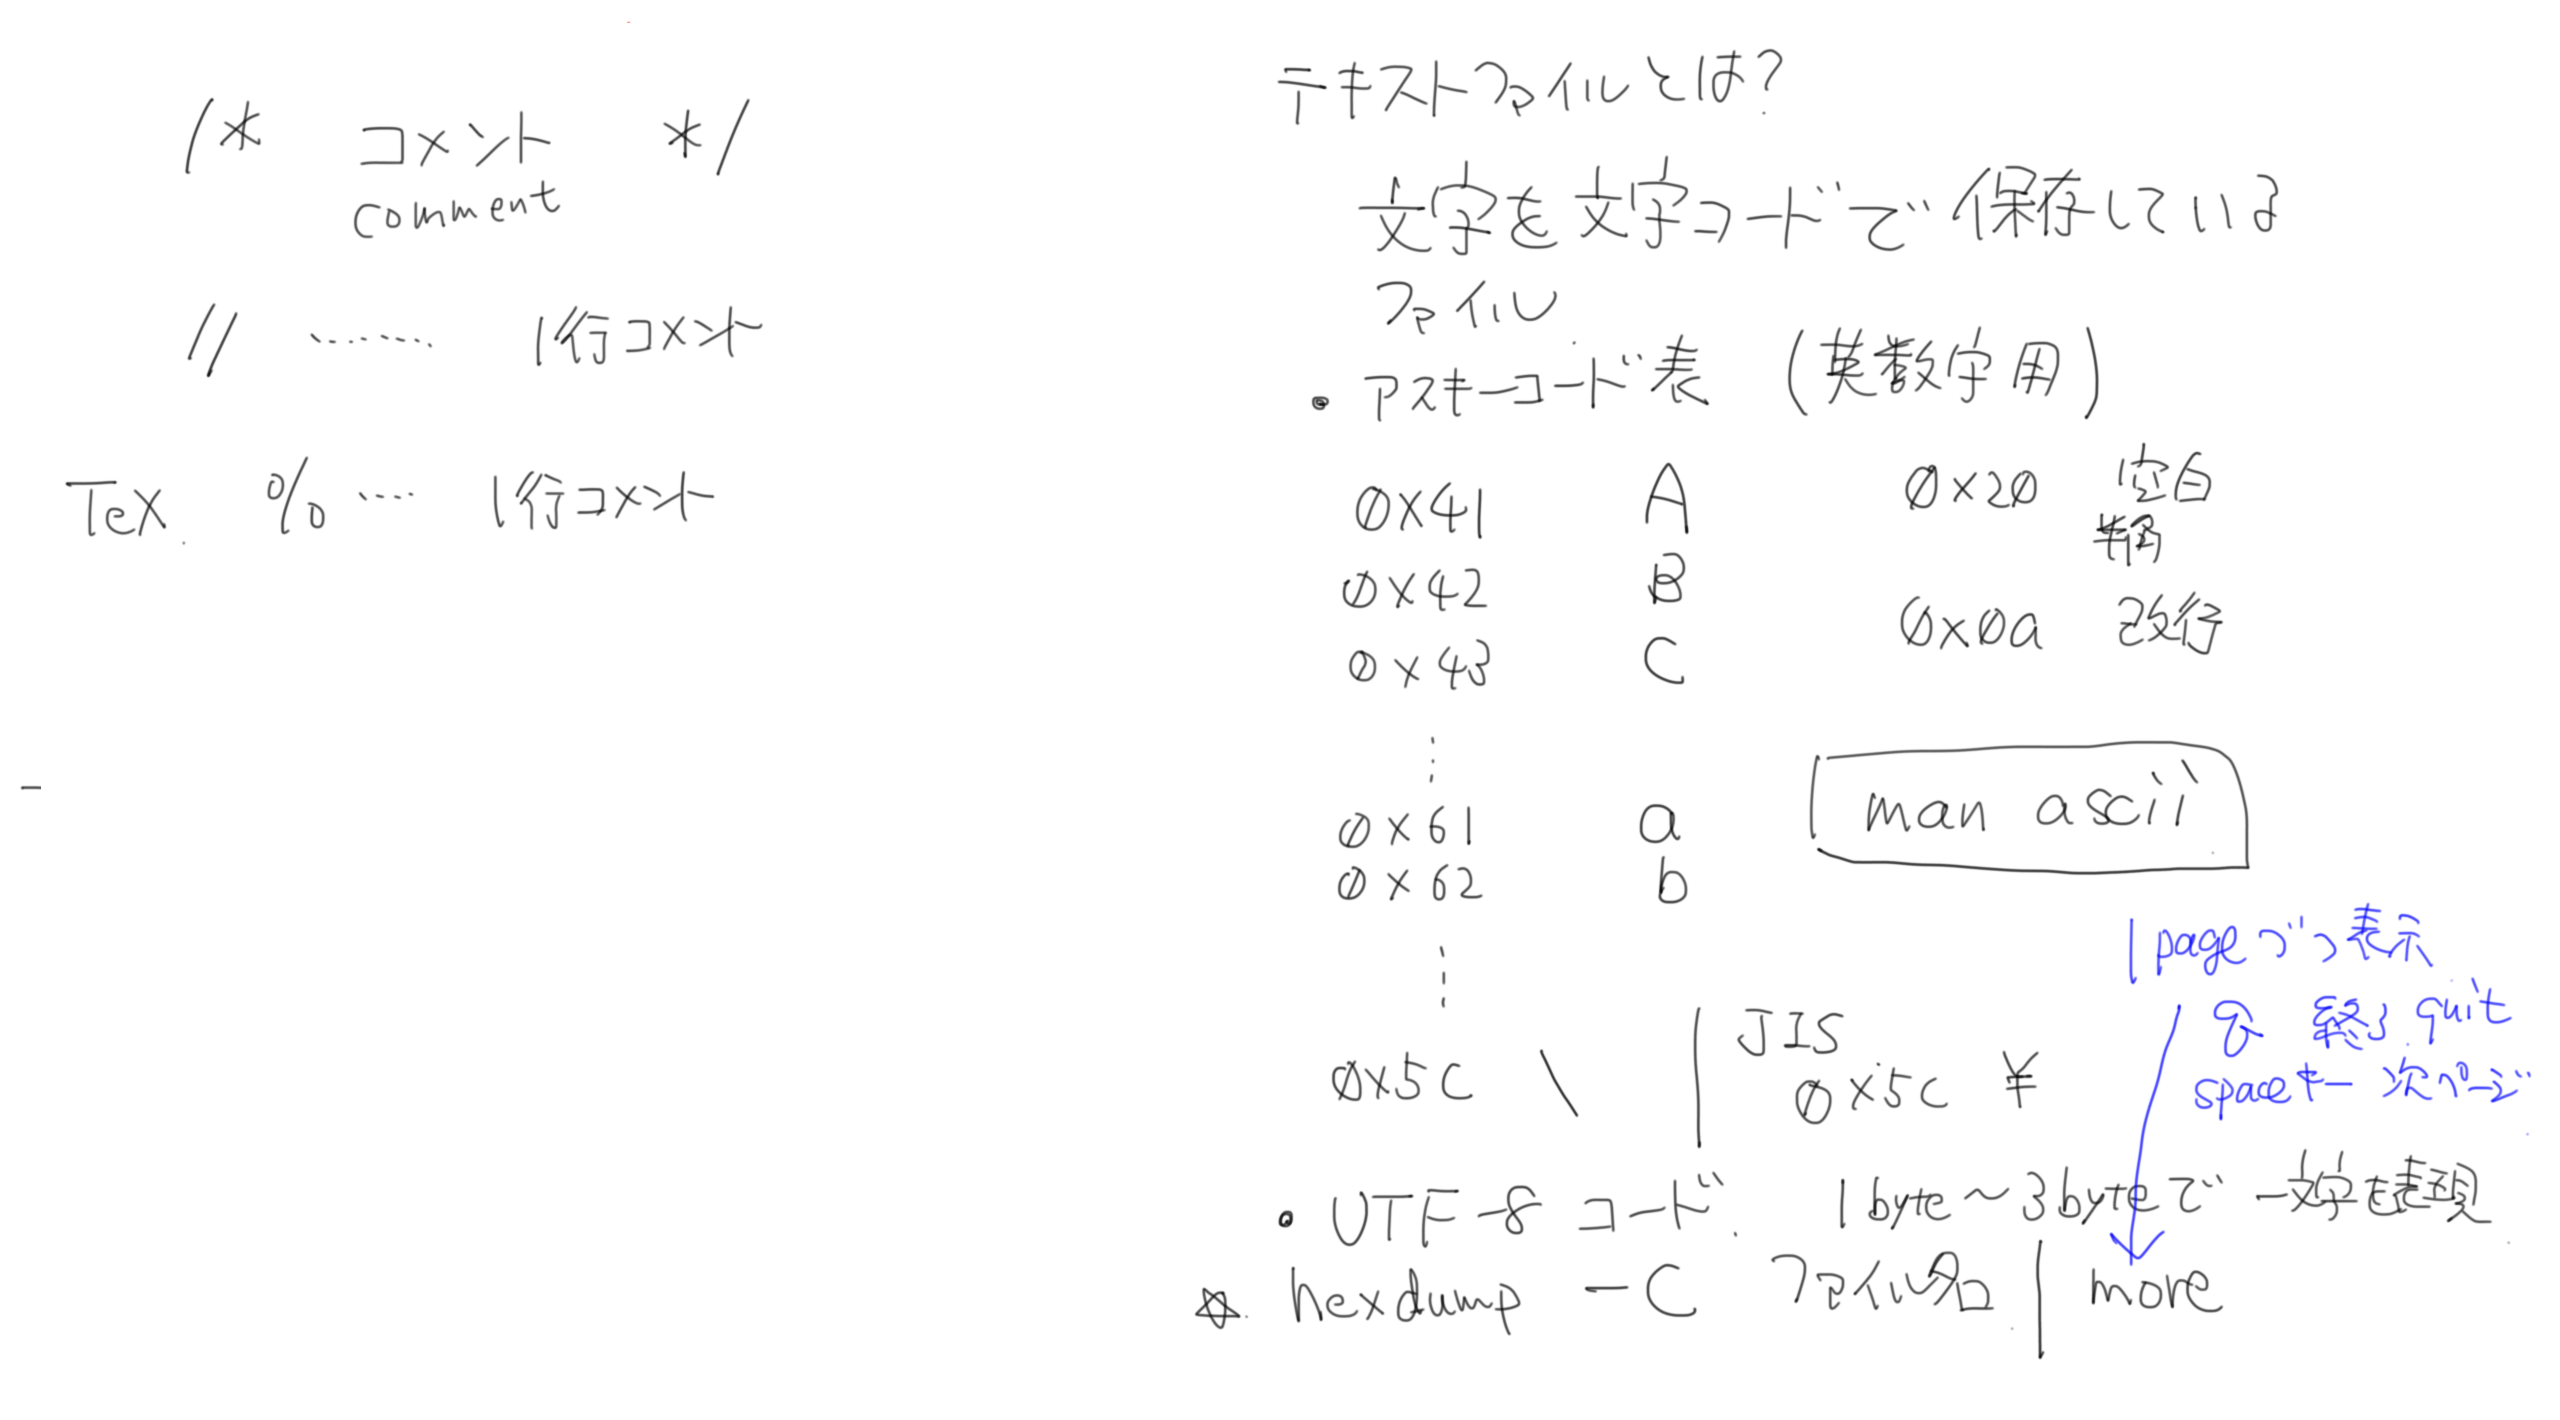 /* コメント */
comment
// ‥‥‥ 1行コメント
TeX % ‥‥ 1行コメント
テキストファイルとは?
文字を文字コードで保存している
ファイル
・アスキーコード表 (英数字用)
0x41 A 0x20 空白
半角
0x42 B 0x0a 改行
0x43 C
⋮
0x61 a man ascii
0x62 b
⋮
1pageづつ表示
q 終了 quit
spaceキー 次ページ
0x5C \ | JIS
0x5C ¥
・UTF-8 コード 1byte〜3byteで一文字を表現
☆ hexdump -C ファイル名 | more